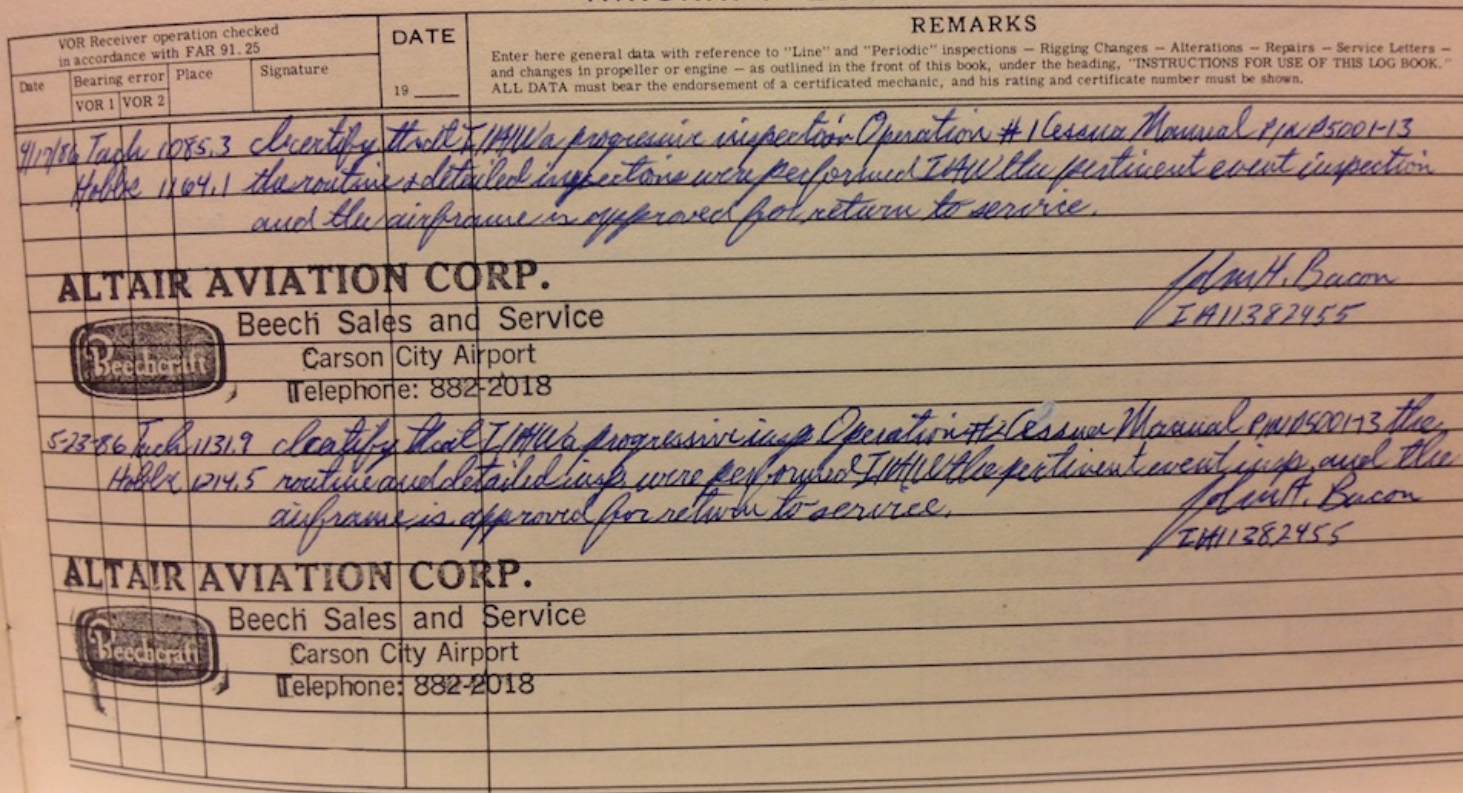 VOR Receiver operation checked
in accordance with FAR 91.25
Date
Bearing error
VOR 1 VOR 2
Place
Signature
DATE
19
REMARKS
Enter here general data with reference to "Line" and "Periodic" inspections — Rigging Changes — Alterations — Repairs — Service Letters —
and changes in propeller or engine — as outlined in the front of this book, under the heading, "INSTRUCTIONS FOR USE OF THIS LOG BOOK."
ALL DATA must bear the endorsement of a certificated mechanic, and his rating and certificate number must be shown.
Tach 1085.3 I certify that IAW a progressive inspection Operation #1 Cessna Manual P/N D5001-13
Hobbs 1164.1 the routine & detailed inspections were performed IAW the pertinent event inspection
and the airframe is approved for return to service.
John H. Bacon
IA11382455
ALTAIR AVIATION CORP.
Beechcraft
Beech Sales and Service
Carson City Airport
Telephone: 882-2018
5-23-86 Tach 1131.9 I certify that IAW a progressive insp Operation #2 Cessna Manual P/N D5001-13 the
Hobbs 1214.5 routine and detailed insp were performed IAW the pertinent event insp, and the
airframe is approved for return to service.
John H. Bacon
IA11382455
ALTAIR AVIATION CORP.
Beechcraft
Beech Sales and Service
Carson City Airport
Telephone: 882-2018